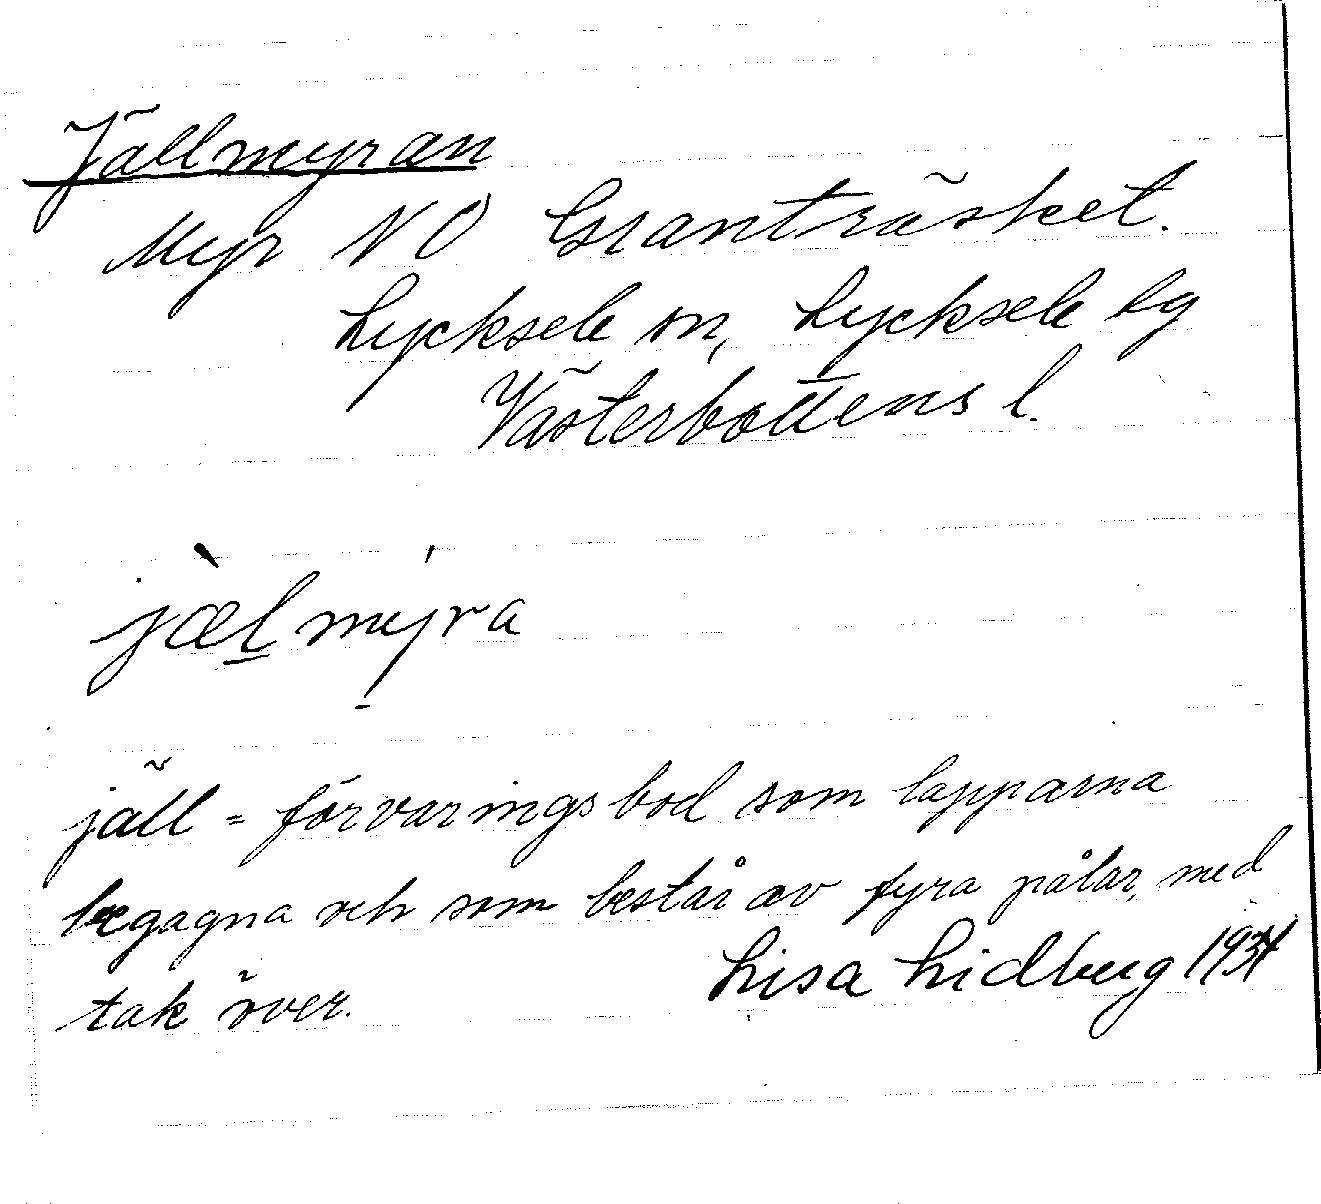 Jällmyran
Myr NO Granträsket.
Lycksele sn, Lycksele lg
Västerbottens l.
jæ̀l̲mýra
jäll = förvaringsbod som lapparna
begagna och som består av fyra pålar, med
tak över.
Lisa Lidberg 1934